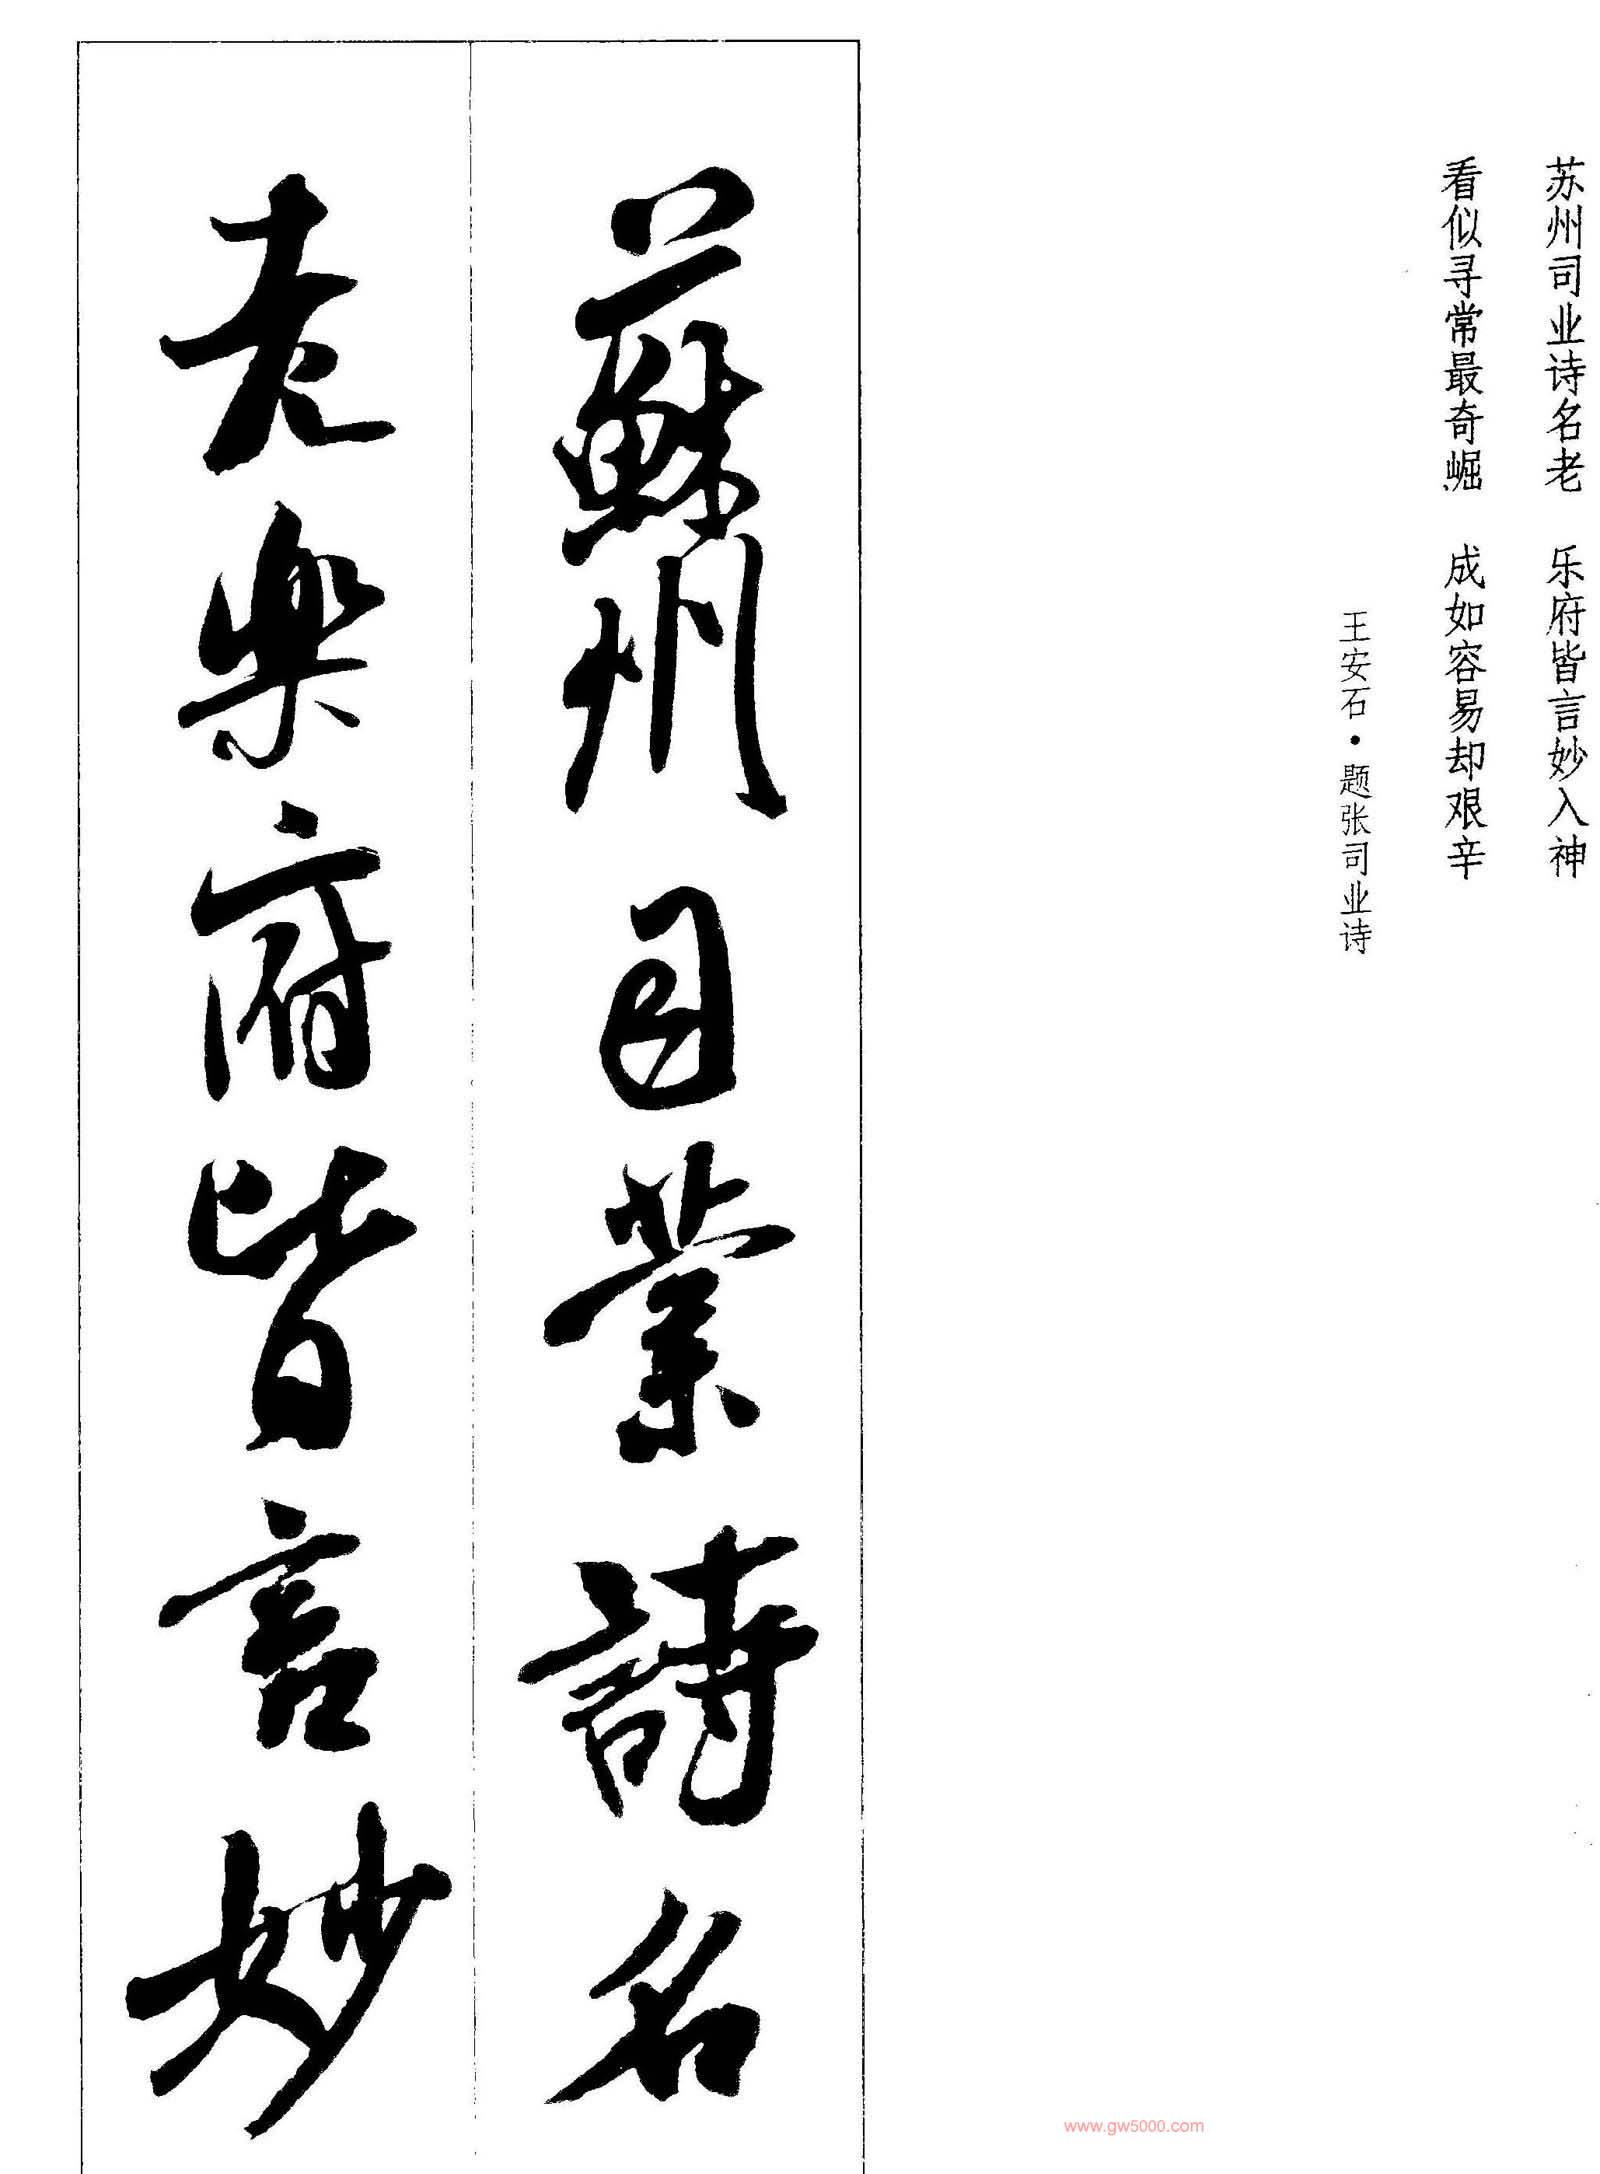 苏州司业诗名老 乐府皆言妙入神
看似寻常最奇崛 成如容易却艰辛
王安石·题张司业诗
蘇州司業詩名
老樂府皆言妙
www.gw5000.com